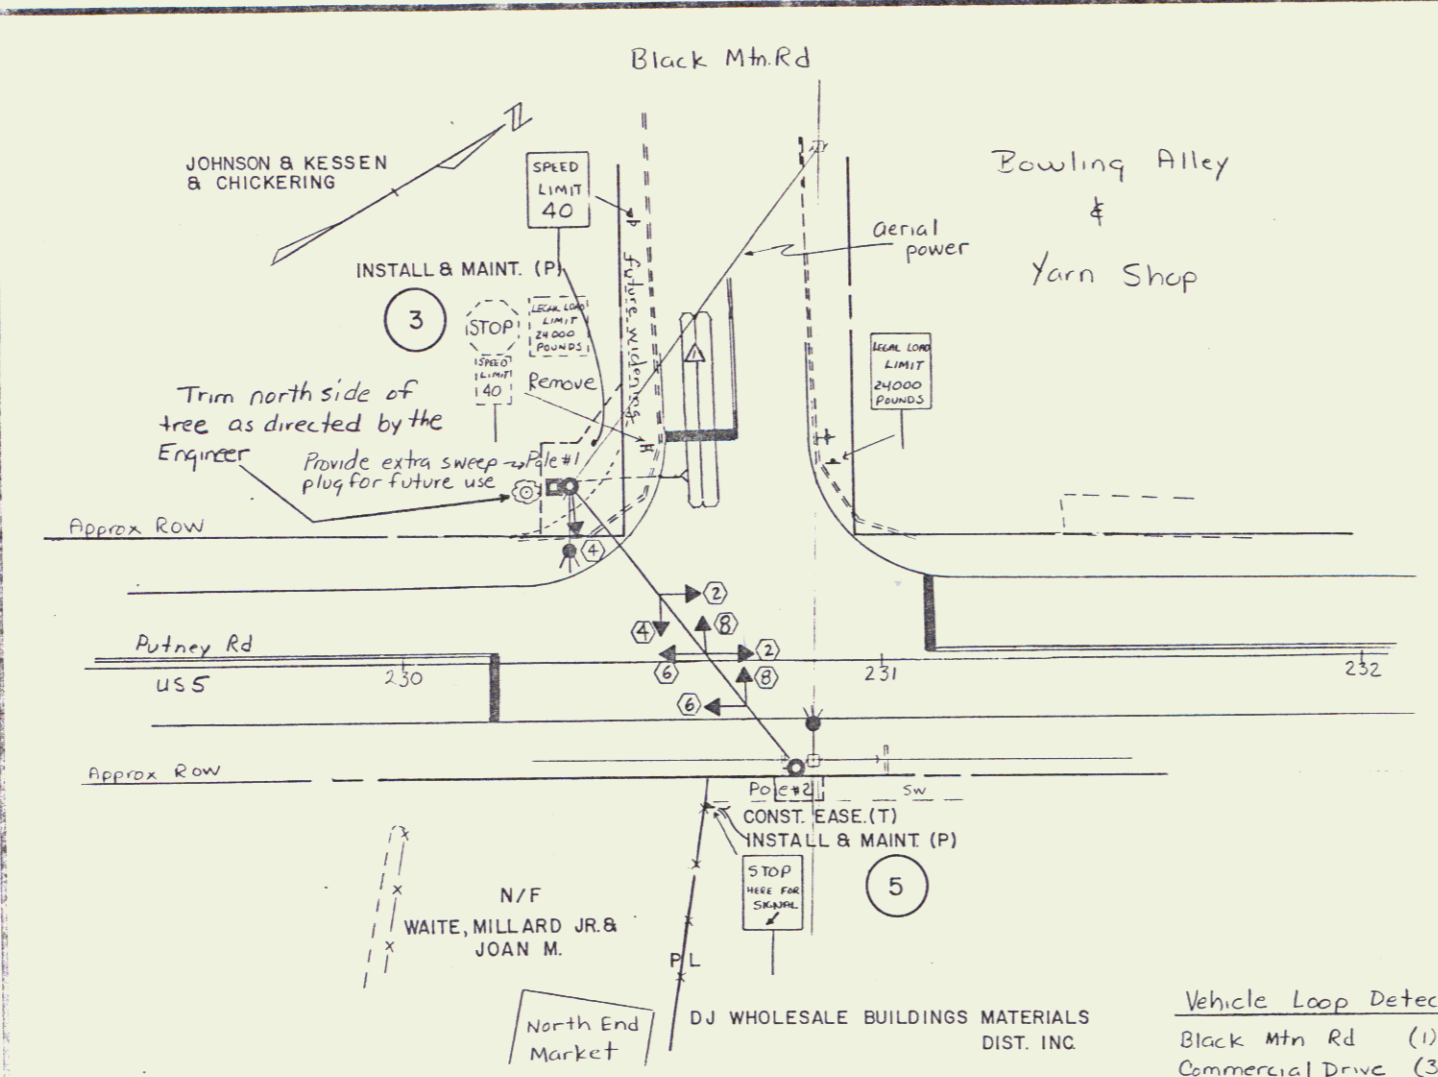 Black Mtn. Rd
JOHNSON & KESSEN
& CHICKERING
SPEED
LIMIT
40
Bowling Alley
&
Yarn Shop
aerial
power
INSTALL & MAINT. (P)
future widening
3
STOP
LEGAL LOAD
LIMIT
24000
POUNDS
SPEED
LIMIT
40
Remove
1
LEGAL LOAD
LIMIT
24000
POUNDS
Trim north side of
tree as directed by the
Engineer
Provide extra sweep
plug for future use
Pole #1
Approx ROW
4
2
4
8
Putney Rd
6
2
US 5
230
231
232
8
6
Approx ROW
Pole #2
SW
CONST. EASE. (T)
INSTALL & MAINT. (P)
STOP
HERE FOR
SIGNAL
5
N/F
WAITE, MILLARD JR. &
JOAN M.
PL
North End
Market
DJ WHOLESALE BUILDINGS MATERIALS
DIST. INC.
Vehicle Loop Detec
Black Mtn Rd (1)
Commercial Drive (3